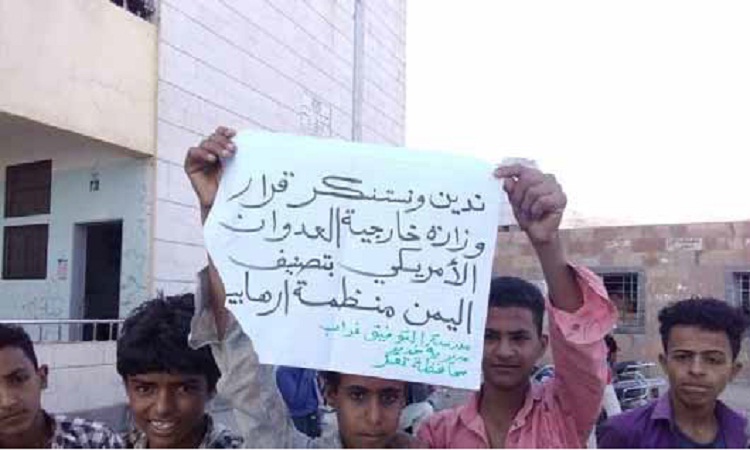 ندين ونستنكر قرار
وزارة خارجية العدوان
الأمريكي بتصنيف
اليمن منظمة ارهابية
مدرسة التوفيق غراب
مديرية خدير
محافظة تعز